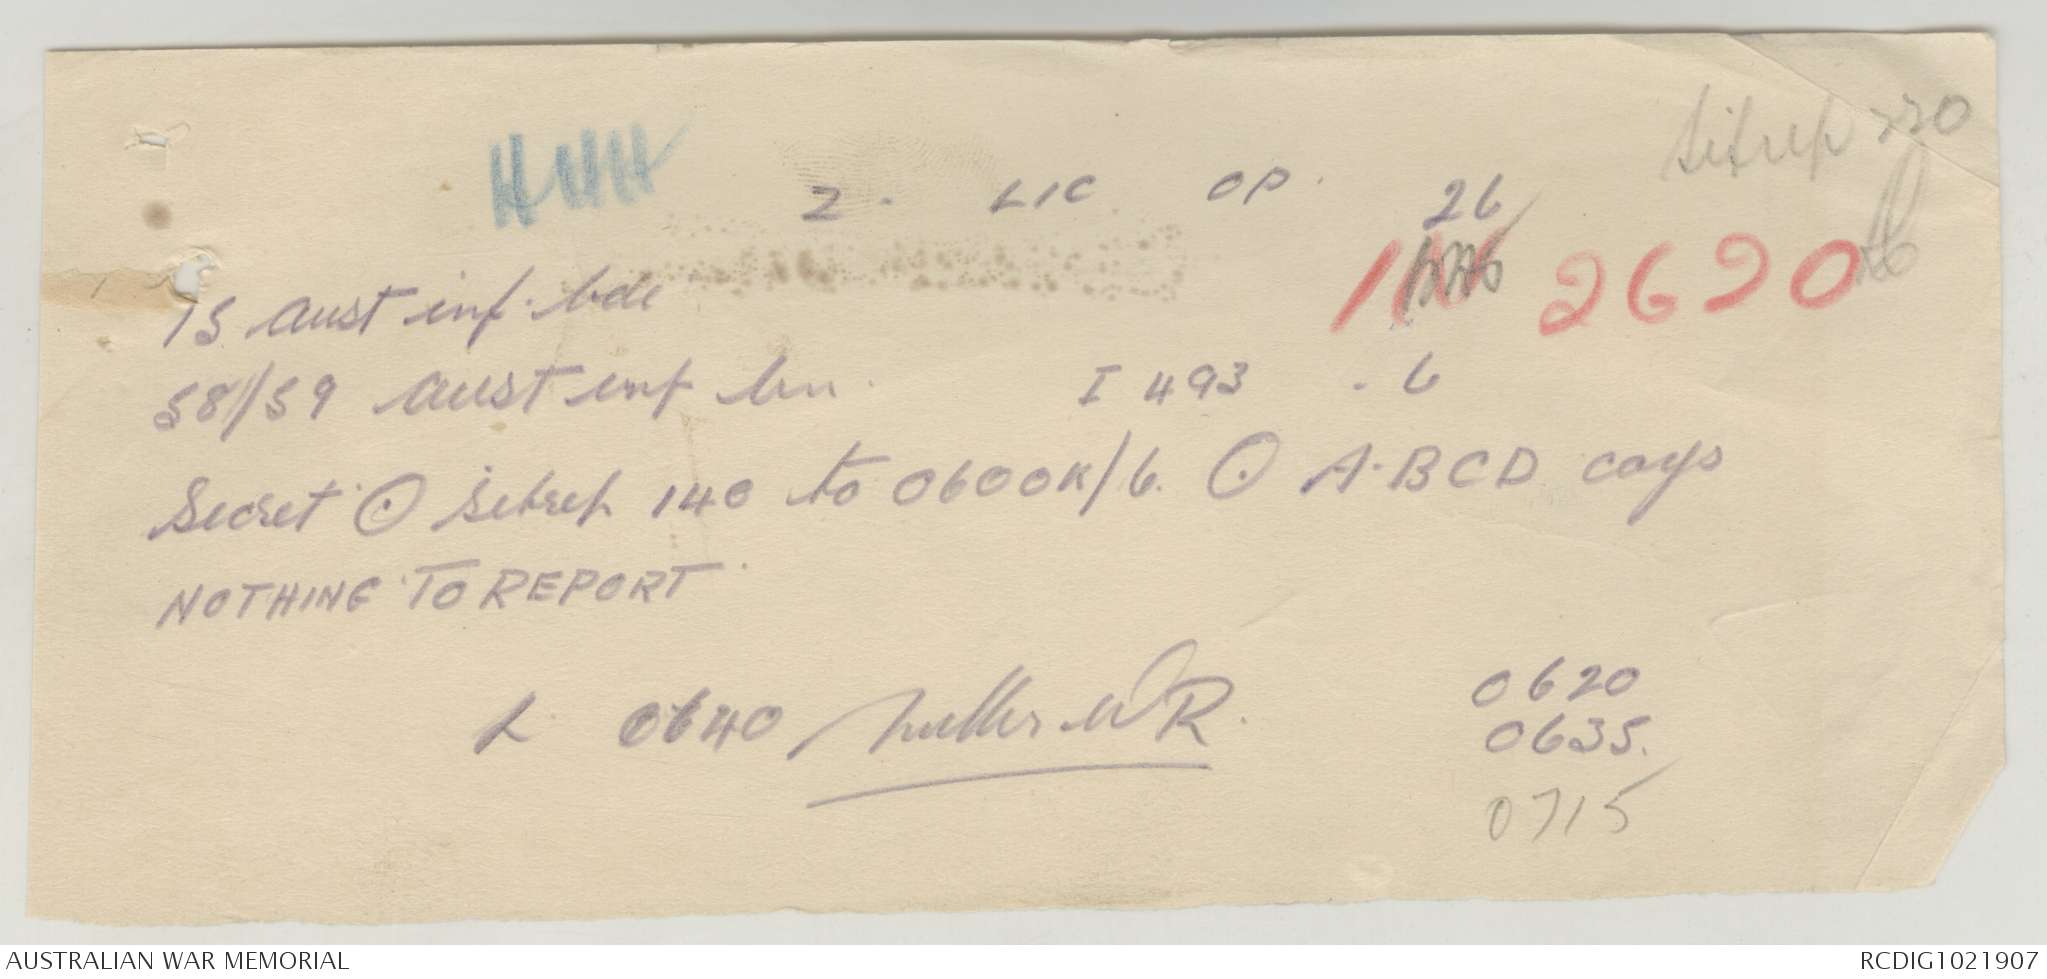 Sitrep 220
2. LIC OP. 26
2620
15 Aust inf. bde
58/59 Aust inf bn. I 493 . 6
Secret ⊙ sitrep 140 to 0600K/6. ⊙ A.BCD coys
NOTHING TO REPORT
0640 WR.
0620
0635.
0715
AUSTRALIAN WAR MEMORIAL
RCDIG1021907